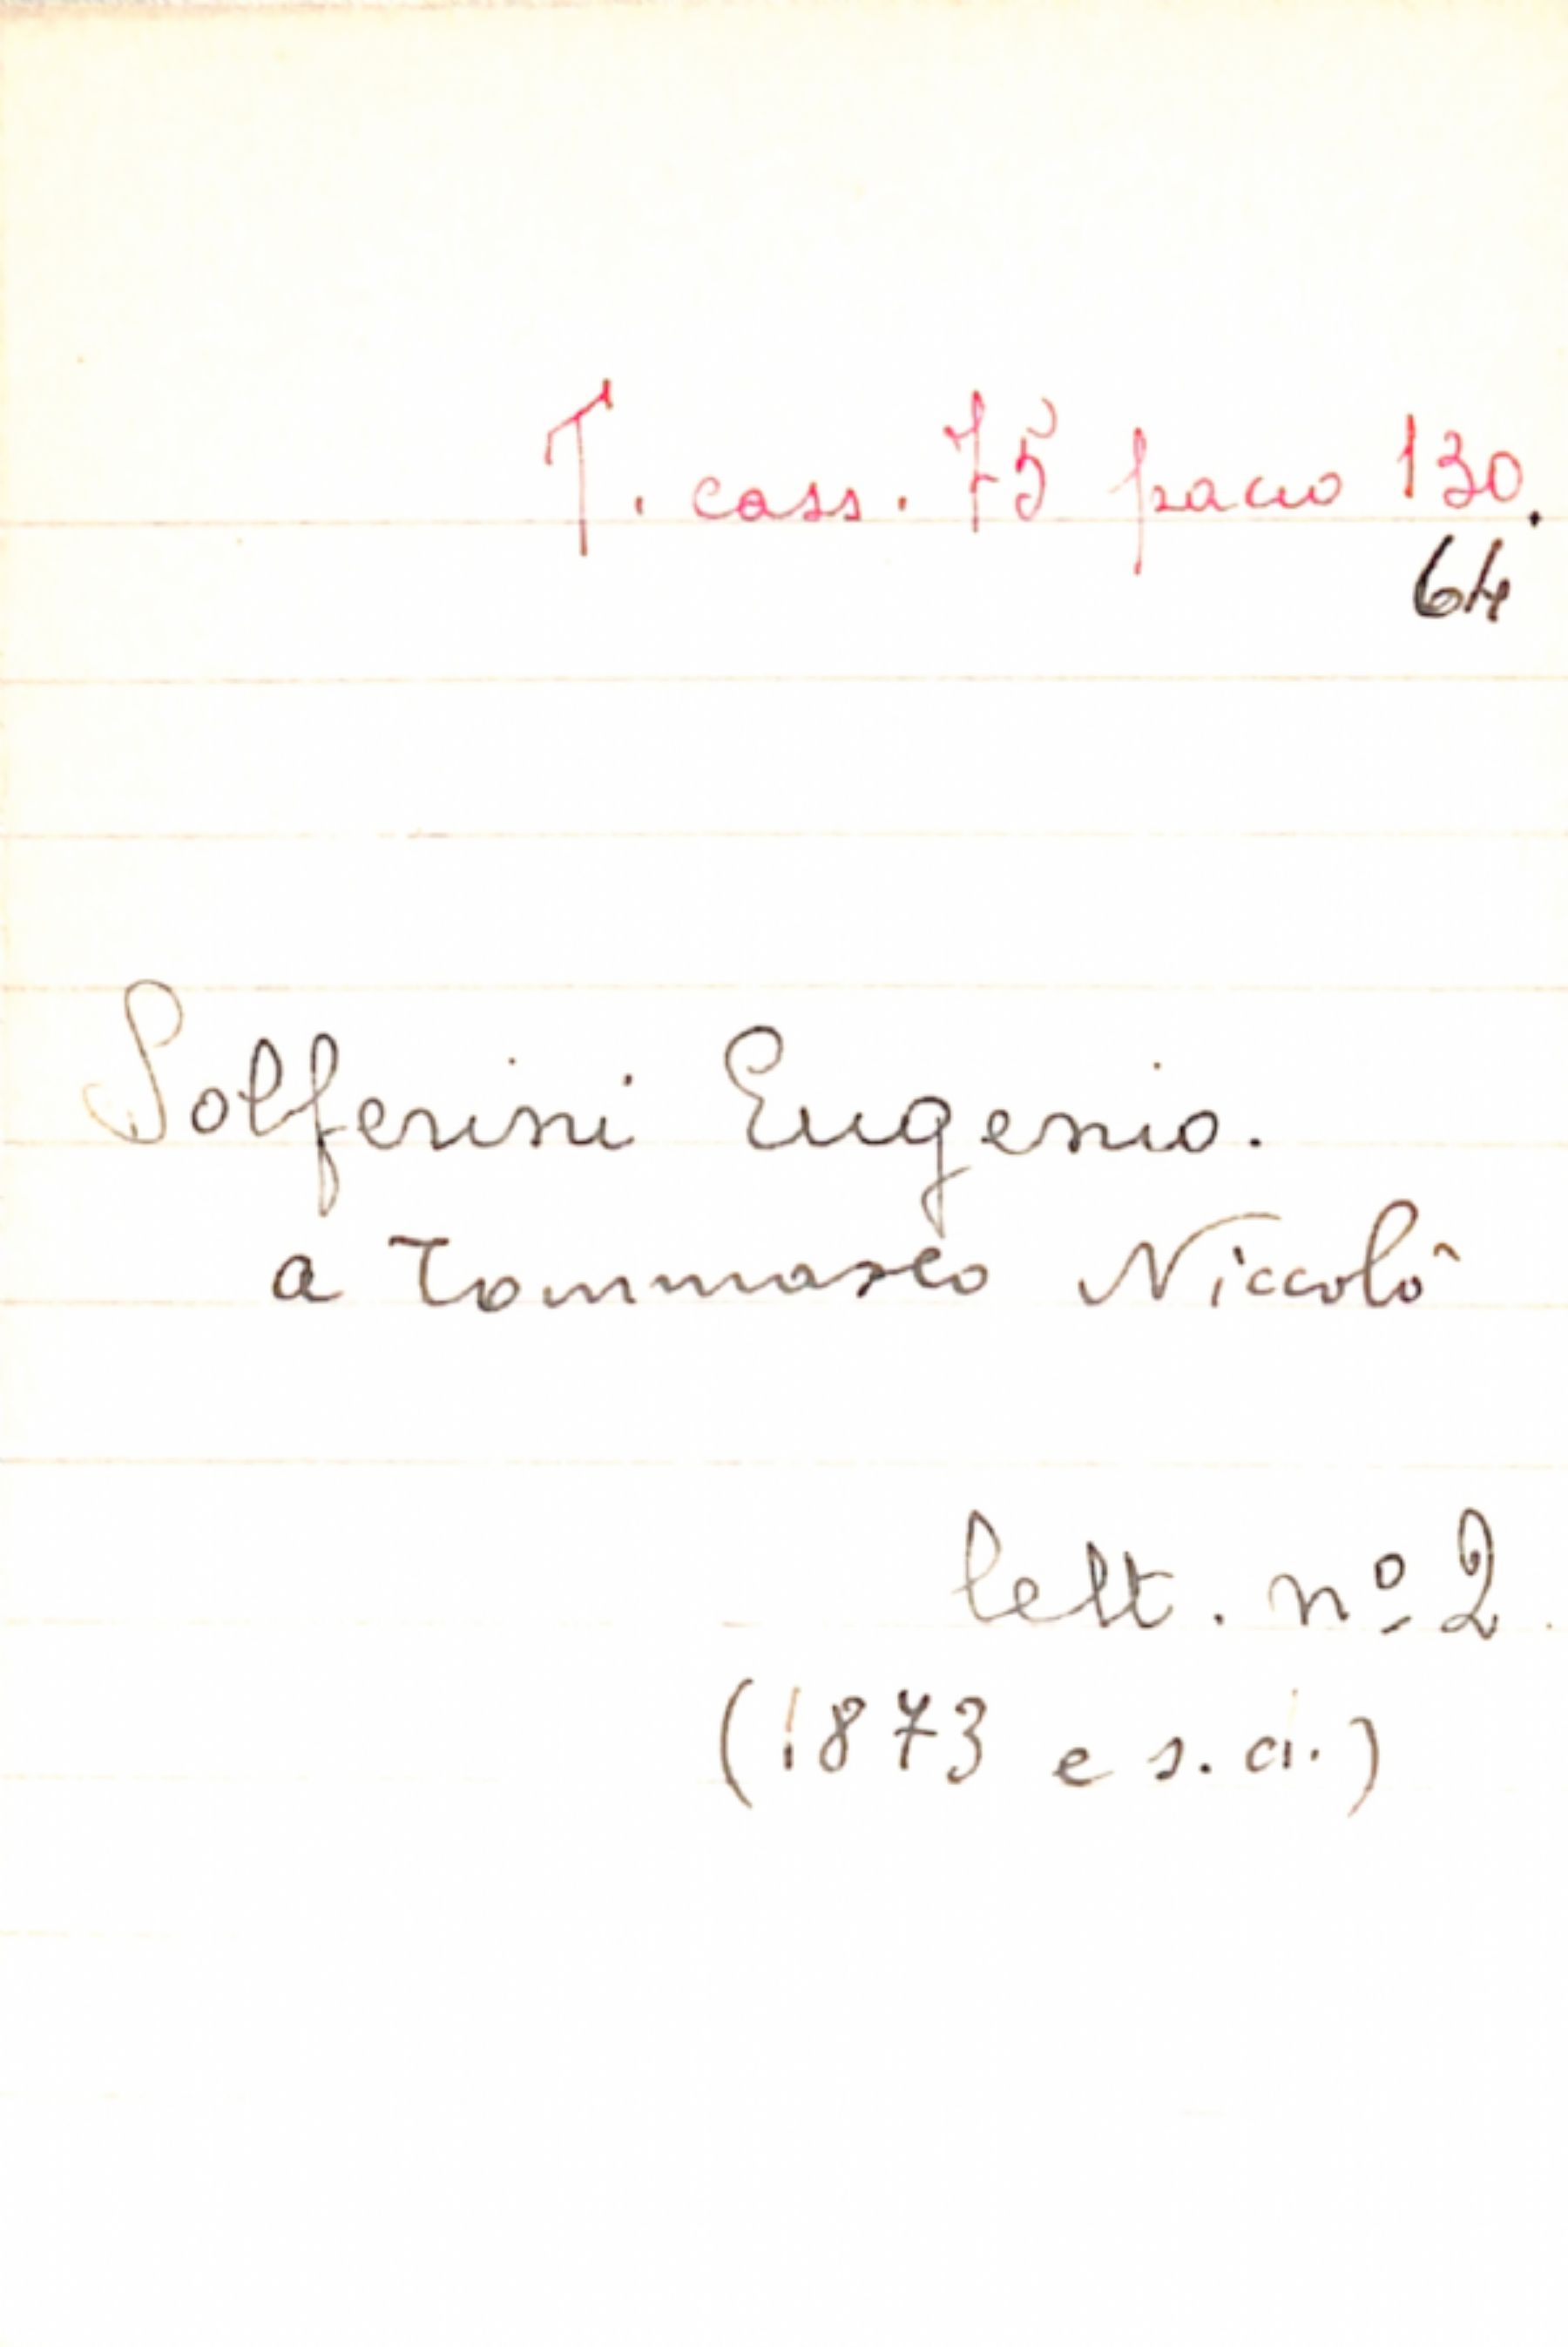 T. cass. 75 pacco 130.
64
Solferini Eugenio.
a Tommaseo Niccolò
lett. nº 2.
(1873 e s.d.)